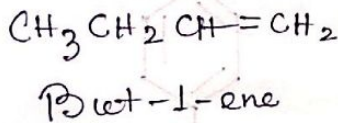 CH3 CH2 CH=CH2
But-1-ene